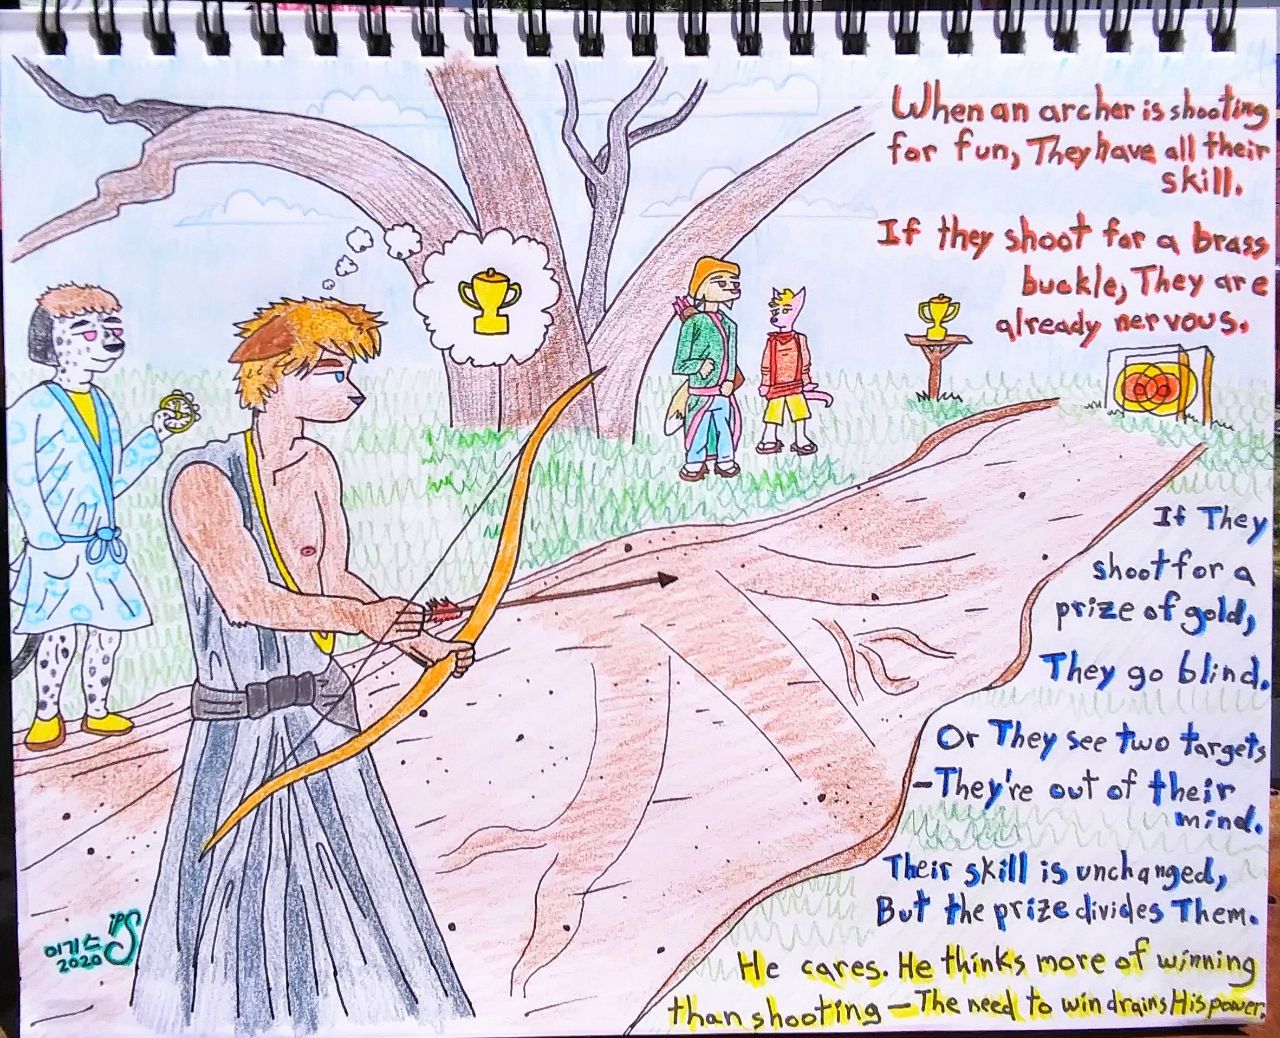 When an archer is shooting
for fun, They have all their
skill.
If they shoot for a brass
buckle, They are
already nervous.
If They
shoot for a
prize of gold,
They go blind.
Or They see two targets
-They're out of their
mind.
Their skill is unchanged,
But the prize divides Them.
He cares. He thinks more of winning
than shooting - The need to win drains His power.
이기스
2020
iPS